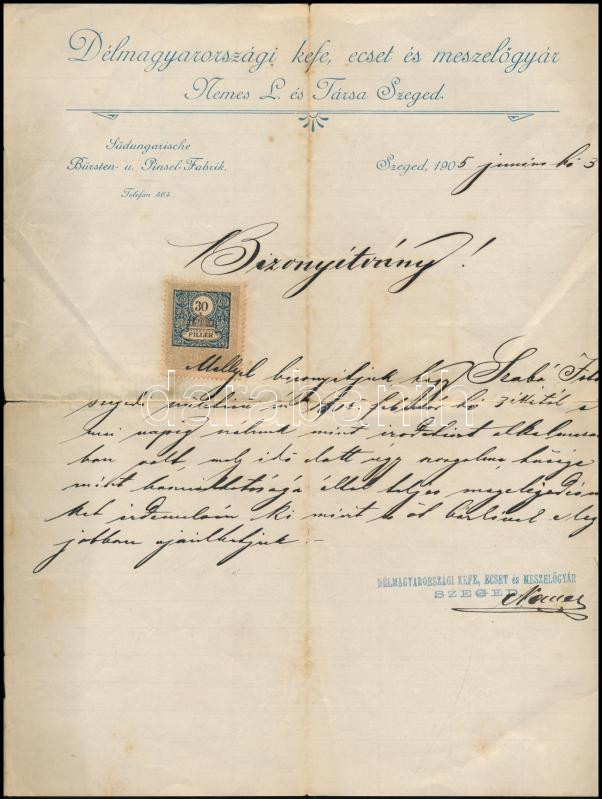 Délmagyarországi kefe, ecset és meszelőgyár
Nemes L. és Társa Szeged.
Südungarische
Bürsten- u. Pinsel-Fabrik.
Telefon 464
Szeged, 1905 június hó 3
Bizonyítvány!
30
FILLÉR
Mellyel bizonyítjuk hogy Szabó
szegedi hó 3 től a
mai napig nálunk mint irodatiszt
ban volt, mely idő alatt úgy szorgalma, hűsége
mint által teljes megelégedésün
ket érdemelvén ki miért is őt bárkinek a leg
jobban ajánlhatjuk. –
DÉLMAGYARORSZÁGI KEFE, ECSET és MESZELŐGYÁR
SZEGED
Nemes
darabanth